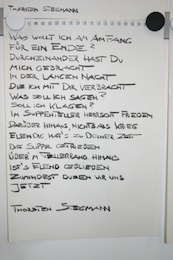 THORSTEN STEGMANN
WAS WILLT ICH AM ANFANG
FÜR EIN ENDE?
DURCHEINANDER HAST DU
MICH GEBRACHT
IN DER LANGEN NACHT
DIE ICH MIT DIR VERBRACHT
WAS SOLL ICH SAGEN?
SOLL ICH KLAGEN?
IM SUPPENTELLER HERRSCHT FRIEDEN
DARÜBER HINAUS NICHTS ALS KRIEG
ELEND HAT'S ZU DEINER ZEIT
DIE SUPPE GETRIEBEN
ÜBER'M TELLERRAND HINAUS
IST'S ELEND GEBLIEBEN
ZUMINDEST UNS
JETZT
THORSTEN STEGMANN